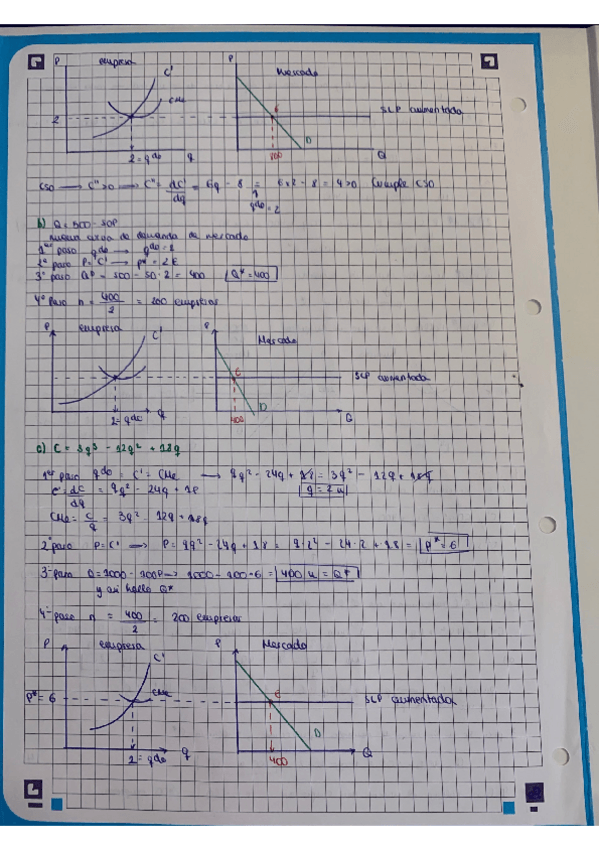 P empresa C' CMe 2 2 = qdo q
P Mercado E SLP aumentada 800 D Q
CSO → C''>0 → C'' = dC'/dq = 6q - 8 = 6×2 - 8 = 4>0 Cumple CSO
q
qdo = 2
b) Q = 500 - 50P
nueva curva de demanda de mercado
1er paso qdo → qdo = 2
2º paso P = C' → P* = 2€
3º paso QD = 500 - 50·2 = 400 Q* = 400
4º Paso n = 400/2 = 200 empresas
P empresa C' 2 = qdo q
P Mercado E SLP aumentada 400 D Q
c) C = 3q³ - 12q² + 18q
1er paso qdo = C' = CMe → 9q² - 24q + 18 = 3q² - 12q + 18
C' = dC/dq = 9q² - 24q + 18 q = 2 u
CMe = C/q = 3q² - 12q + 18q
2º paso P = C' → P = 9q² - 24q + 18 = 9·2² - 24·2 + 18 = P* = 6
3er paso Q = 1000 - 100P → 1000 - 100·6 = 400 u = Q*
y así hallo Q*
4º paso n = 400/2 = 200 empresas
P empresa C' CMe P* = 6 2 = qdo q
P Mercado E SLP aumentada D 400 Q